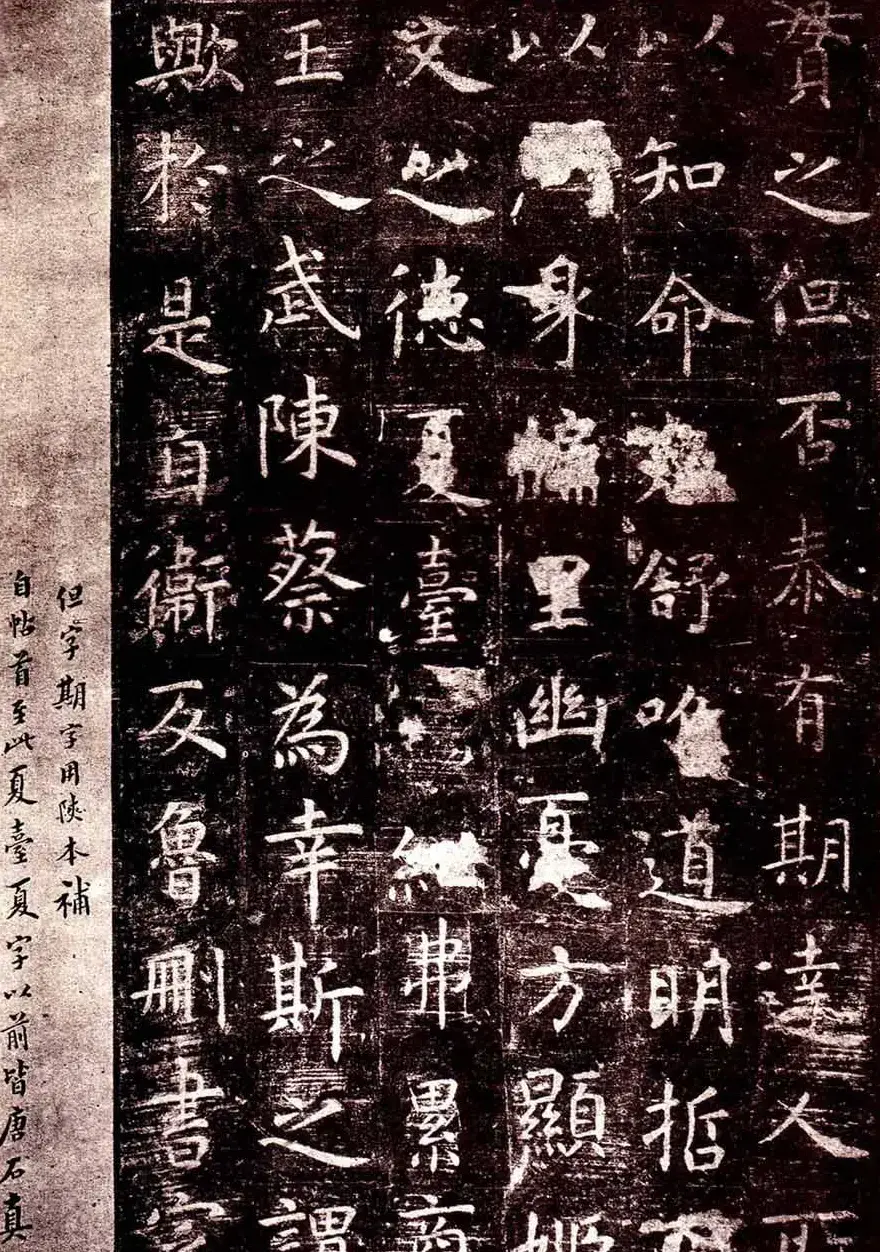 貫之但否泰有期達人所
以知命舒唯道明哲所
以身牖里幽憂方顯姬
文之德夏臺紲弗累商
王之武陳蔡為幸斯之謂
歟於是自衛反魯刪書定
但字期字用陝本補
自帖首至此夏臺夏字以前皆唐石真